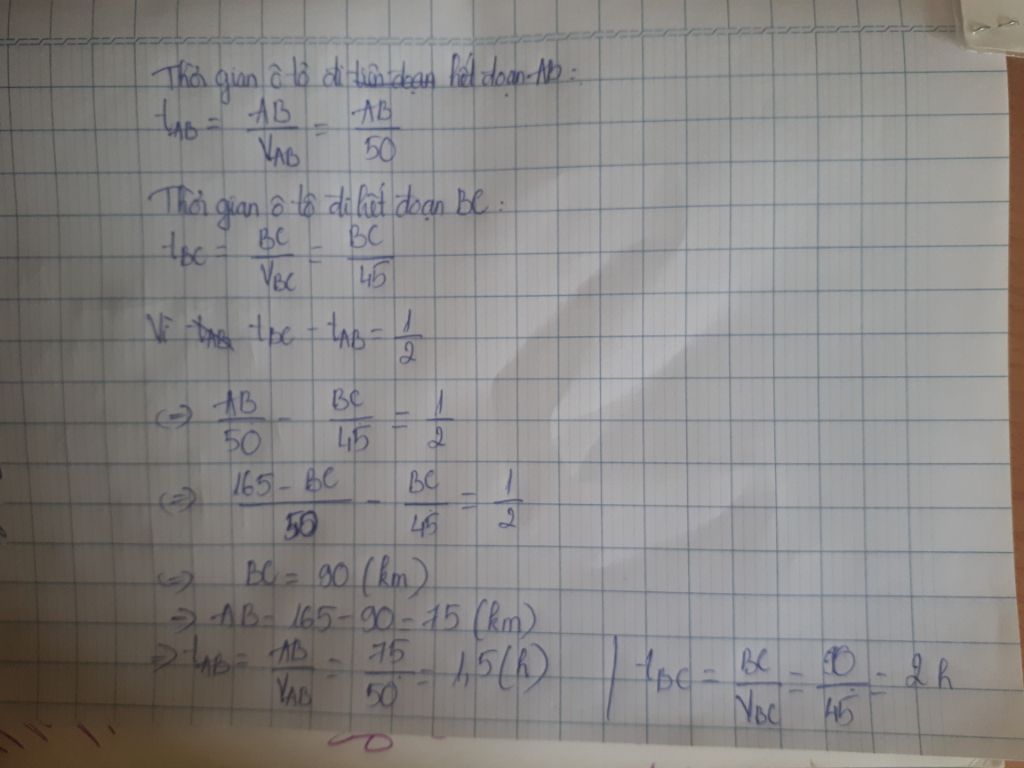 Thời gian ô tô đi hết đoạn AB:
t_AB = AB/V_AB = AB/50
Thời gian ô tô đi hết đoạn BC:
t_BC = BC/V_BC = BC/45
Vì t_BC - t_AB = 1/2
(=) AB/50 - BC/45 = 1/2
(=) (165 - BC)/50 - BC/45 = 1/2
(=) BC = 90 (km)
=> AB = 165 - 90 = 75 (km)
=> t_AB = AB/V_AB = 75/50 = 1,5 (h) | t_BC = BC/V_BC = 90/45 = 2 h